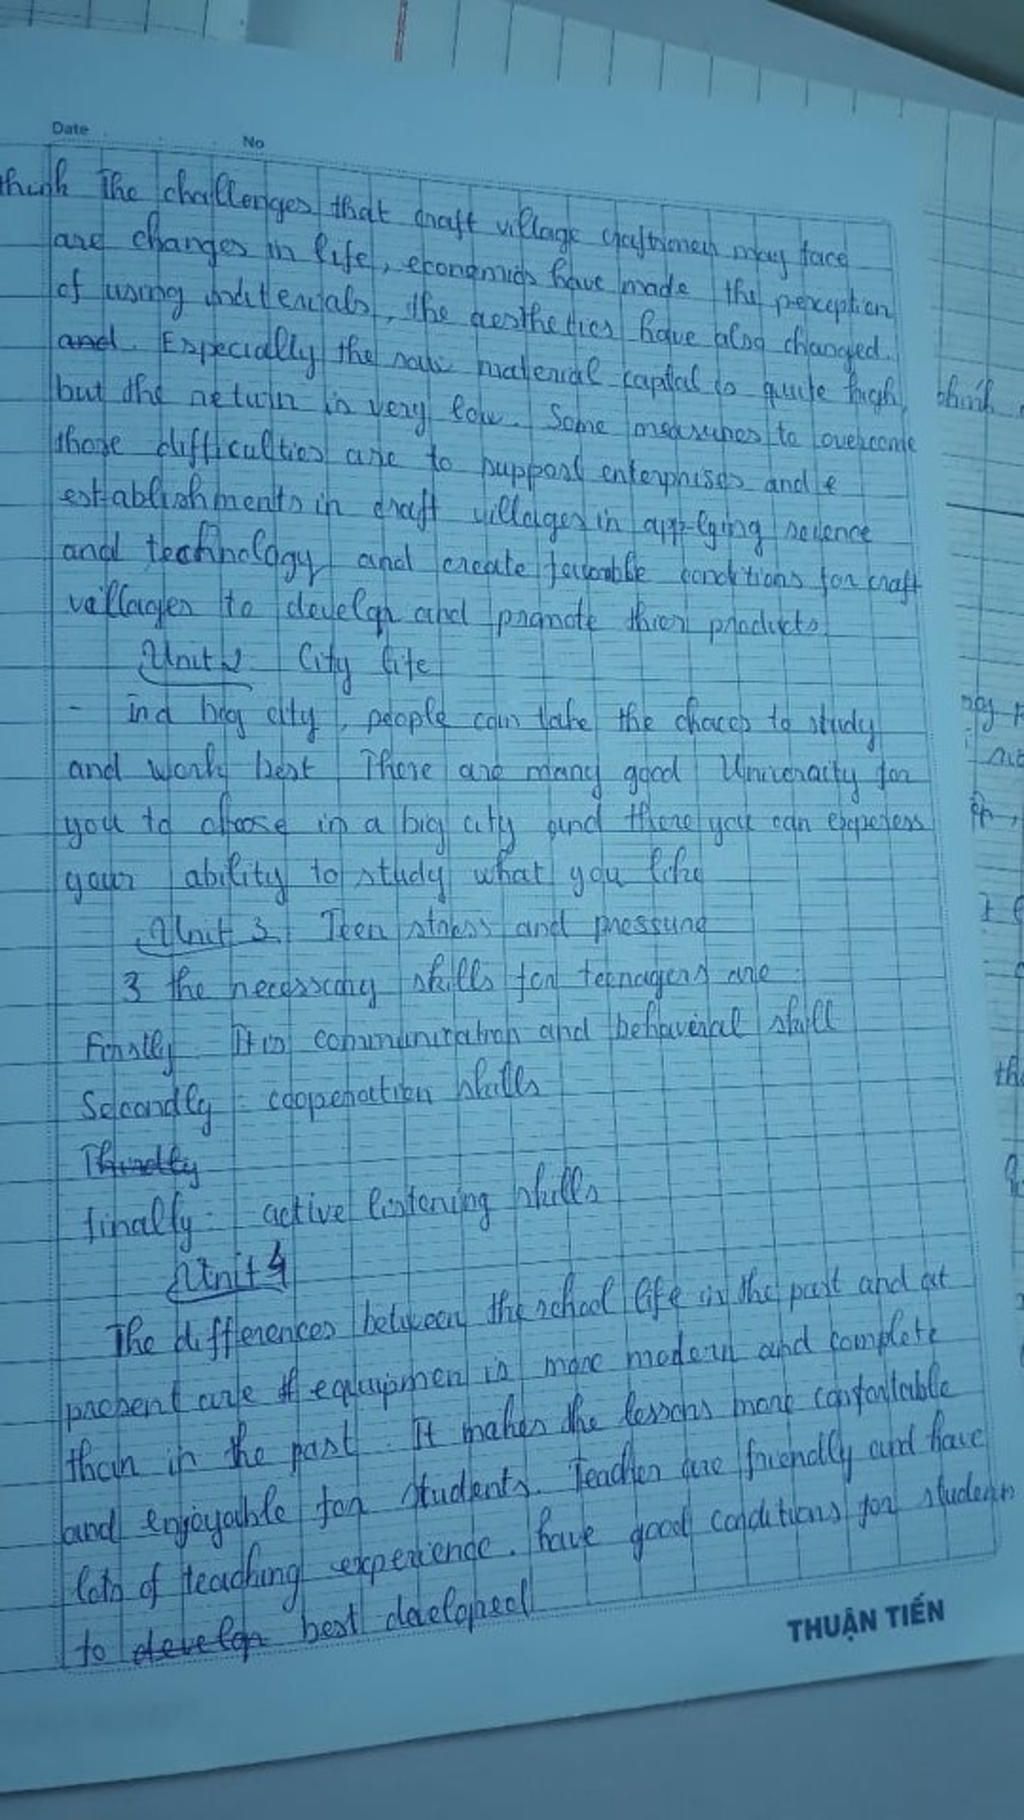 Date No
think The challenges that craft village craftsmen may face
are changes in life, economics have made the perception
of using materials, the aesthetics have also changed.
and. Especially the raw material capital is quite high,
but the return is very low. Some measures to overcome
those difficulties are to support enterprises and e
establishments in craft villages in applying science
and technology and create favorable conditions for craft
villages to develop and promote thier products.
Unit 2 City life
- in a big city, people can take the chaces to study
and work best There are many good Univeracity for
you to choose in a big city and there you can
your ability to study what you like
Unit 3 Teen stress and pressure
3 the necessary skills for teenagers are
Firstly It is communication and behavioral skill
Secondly - cooperation skills
Thirdly
finally - active listening skills
Unit 4
The differences between the school life in the past and at
present are if equipmen is more modern and complete
than in the past. It makes the lessons more confortable
and enjoyable for students. Teacher are friendly and have
lots of teaching experience. have good conditions for students
to develop best developed
THUẬN TIẾN